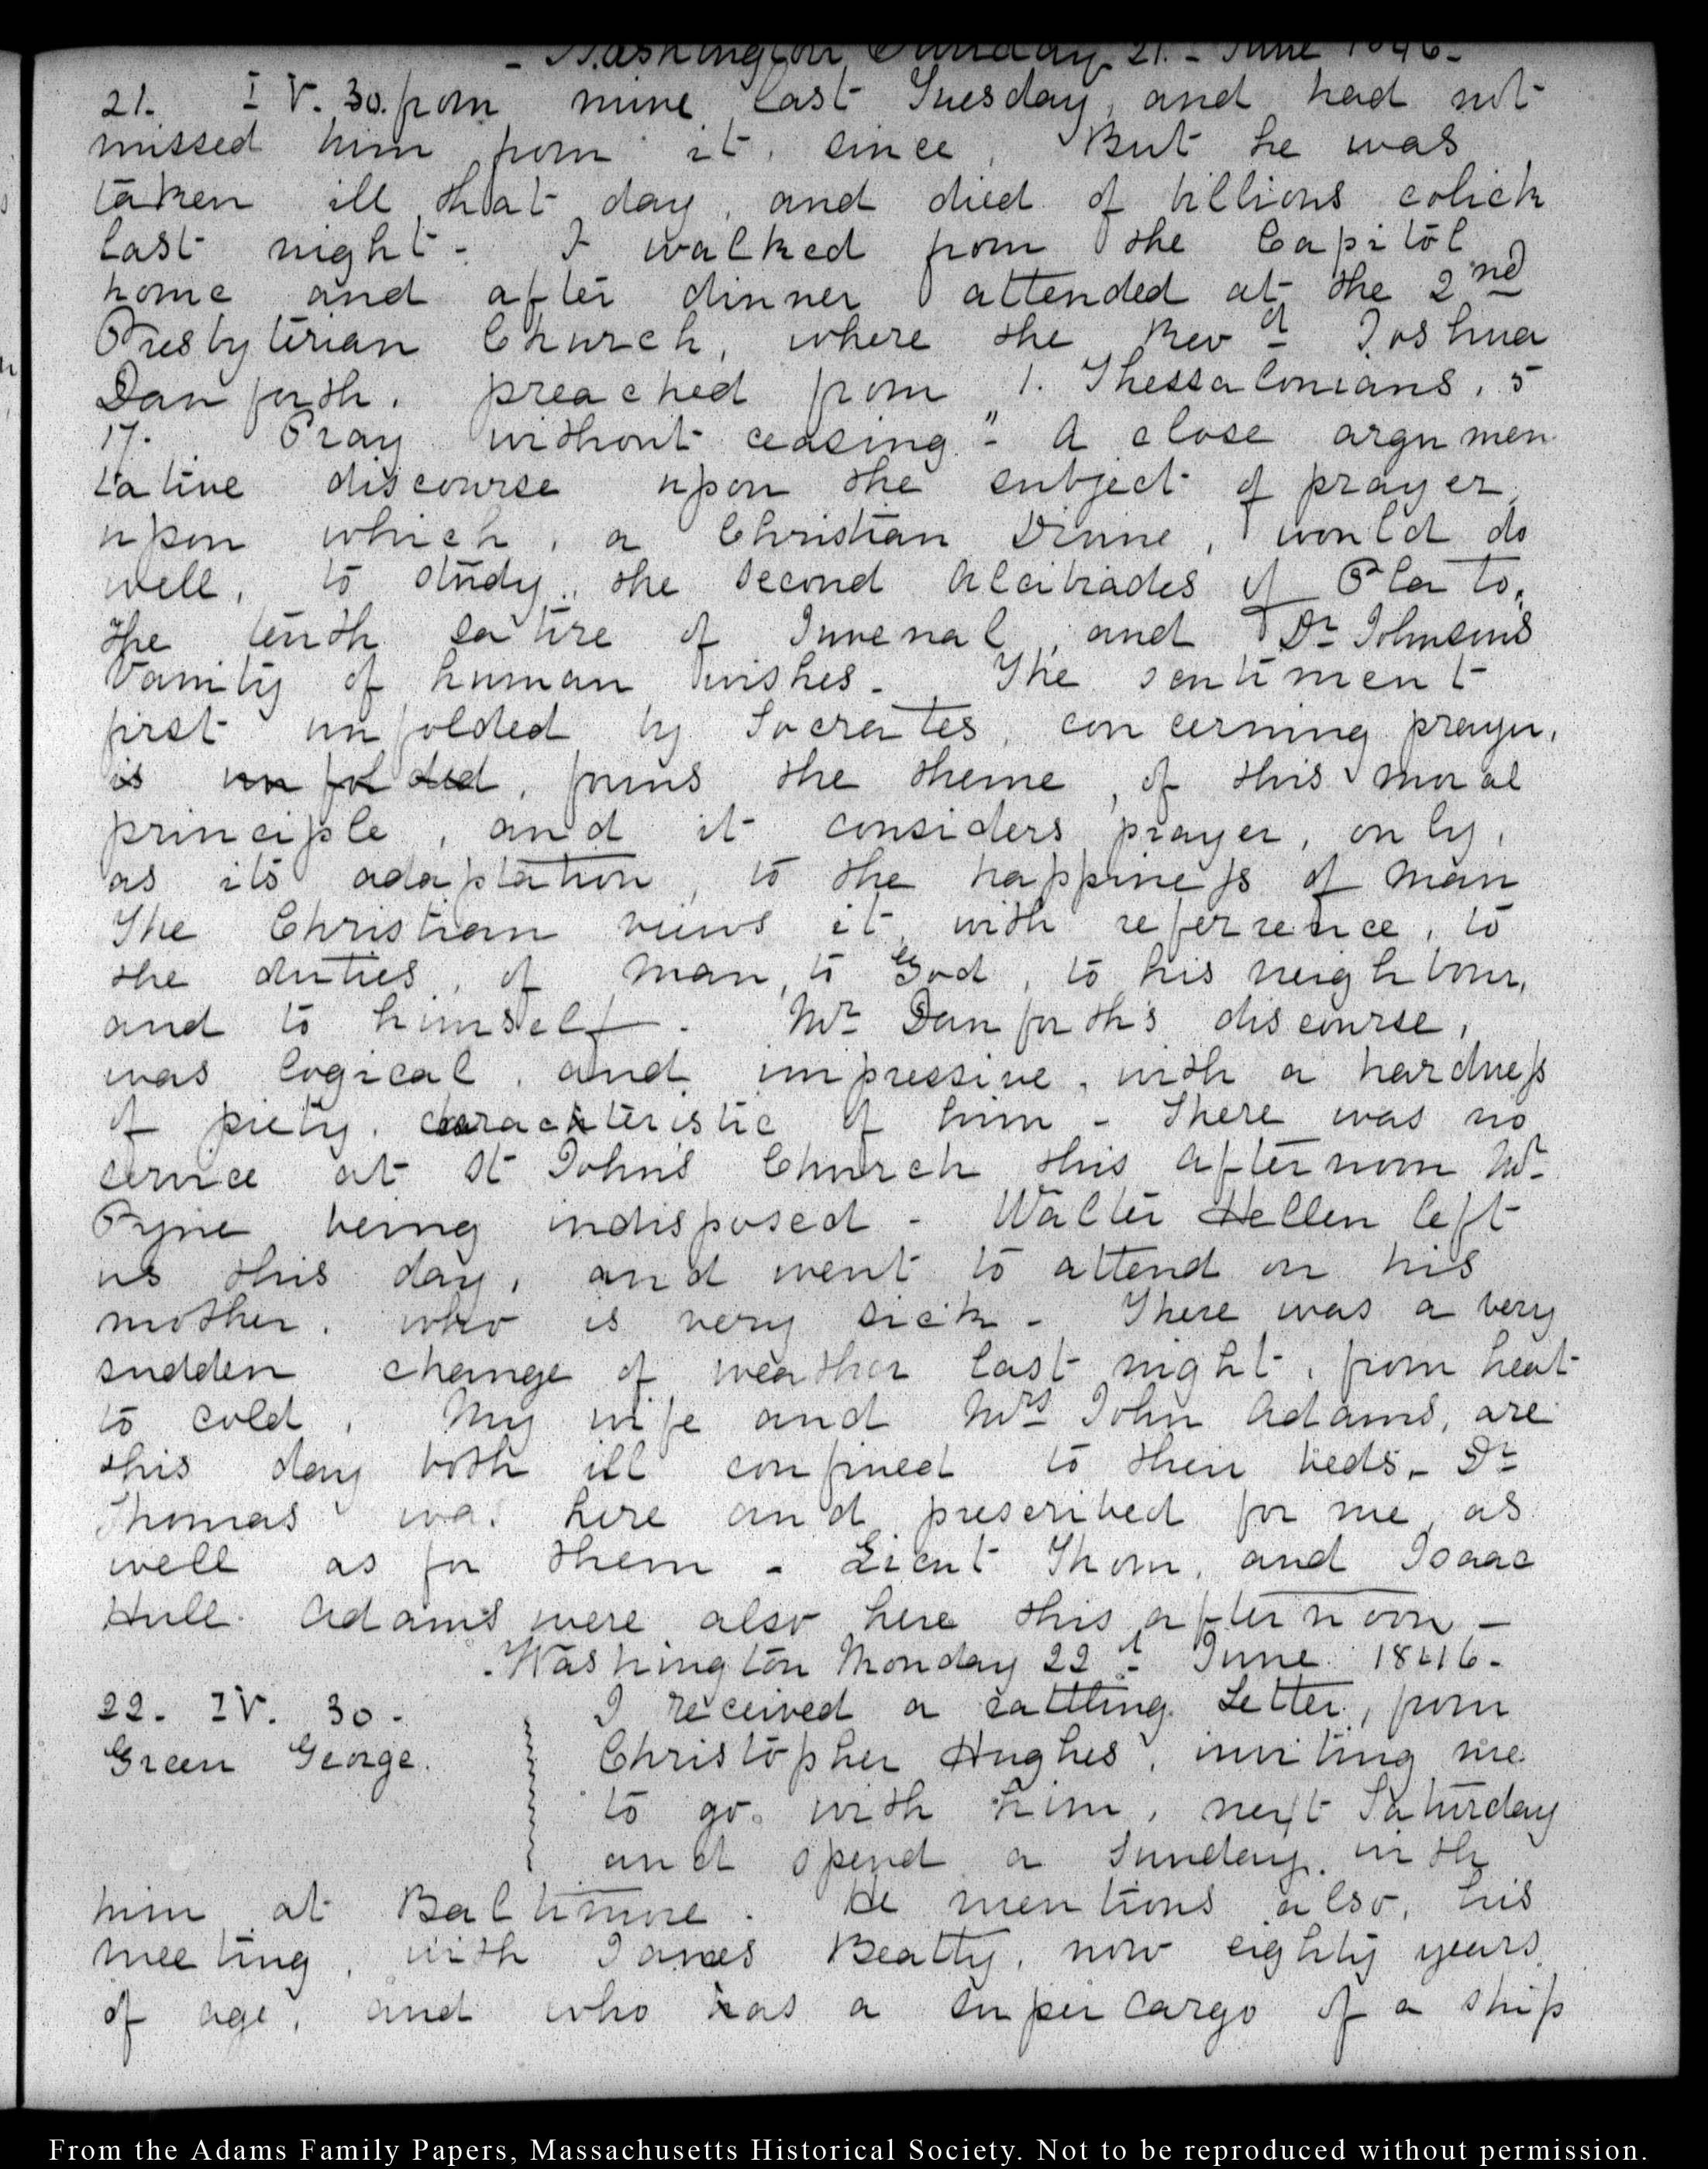 - Washington Sunday 21. - June 1846-
21. IV. 30. from mine last Tuesday, and had not
missed him from it, since, But he was
taken ill that day, and died of billious colick
last night - I walked from the Capitol
home and after dinner attended at the 2nd
Presbyterian Church, where the Revd Joshua
Danforth. preached from 1. Thessalonians, 5
17. Pray without ceasing." - A close argumen
tative discourse upon the subject of prayer,
upon which, a Christian Divine, would do
well, to study, the Second Alcibiades of Plato,
the tenth satire of Juvenal, and Dr Johnsons
Vanity of human wishes - The sentiment
first unfolded by Socrates, concerning prayer,
is unfolded, forms the theme, of this moral
principle, and it considers prayer, only,
as its adaptation, to the happiness of man
The Christian views it, with referrence, to
the duties, of man, to God, to his neighbour,
and to himself - Mr Danforth's discourse,
was logical, and impressive, with a hardness
of piety, characteristic of him - There was no
service at St John's Church this afternoon Mr
Pyne being indisposed - Walter Hellen left
us this day, and went to attend on his
mother, who is very sick - There was a very
sudden change of weather last night, from heat
to cold, My wife and Mrs John Adams, are
this day both ill confined to their beds, - Dr
Thomas was here and prescribed for me, as
well as for them - Lieut Thom, and Isaac
Hull Adams were also here this afternoon -
- Washington Monday 22d June 1846 -
22. IV. 30 - I received a rattling Letter, from
Green George. Christopher Hughes, inviting me
to go with him, next Saturday
and spend a Sunday, with
him at Baltimore. He mentions also, his
meeting, with James Beatty, now eighty years
of age, and who was a supercargo of a ship
From the Adams Family Papers, Massachusetts Historical Society. Not to be reproduced without permission.